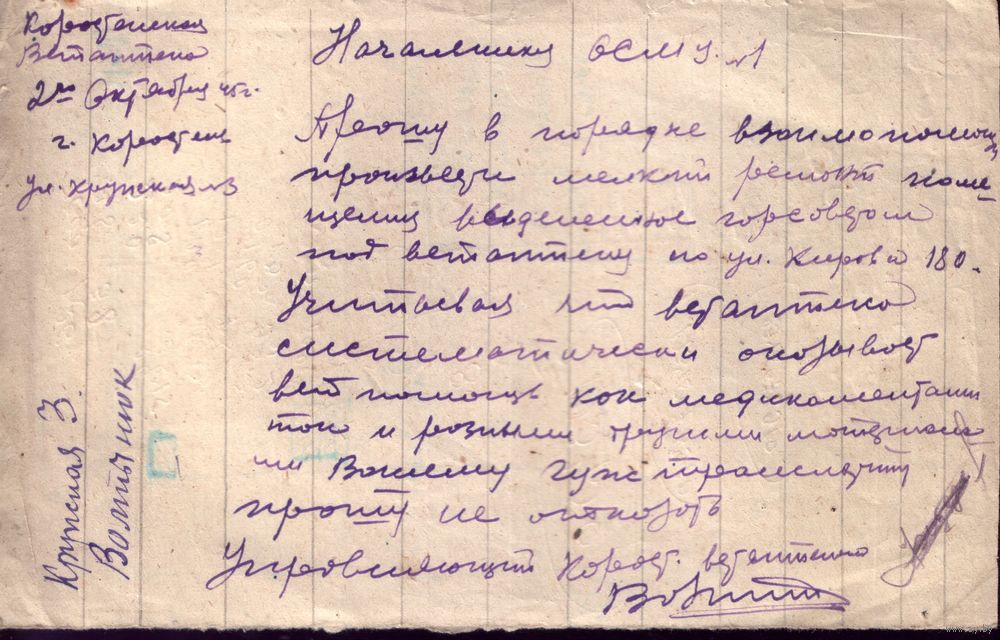 Коростенская
Ветаптека
2го Октября 45 г.
г. Коростень
ул. Крупская №3
Начальнику ОСМУ. №1
Прошу в порядке взаимопомощи
произвести мелкий ремонт поме-
щения выделенное горсоветом
под ветаптеку по ул. Кирова 180.
Учитывая что ветаптека
систематически оказывает
вет помощь как медикаментами
так и разными другими материала-
ми Вашему гуж транспорту
прошу не отказать
Управляющий Корост. ветаптекой
Крупская 3.